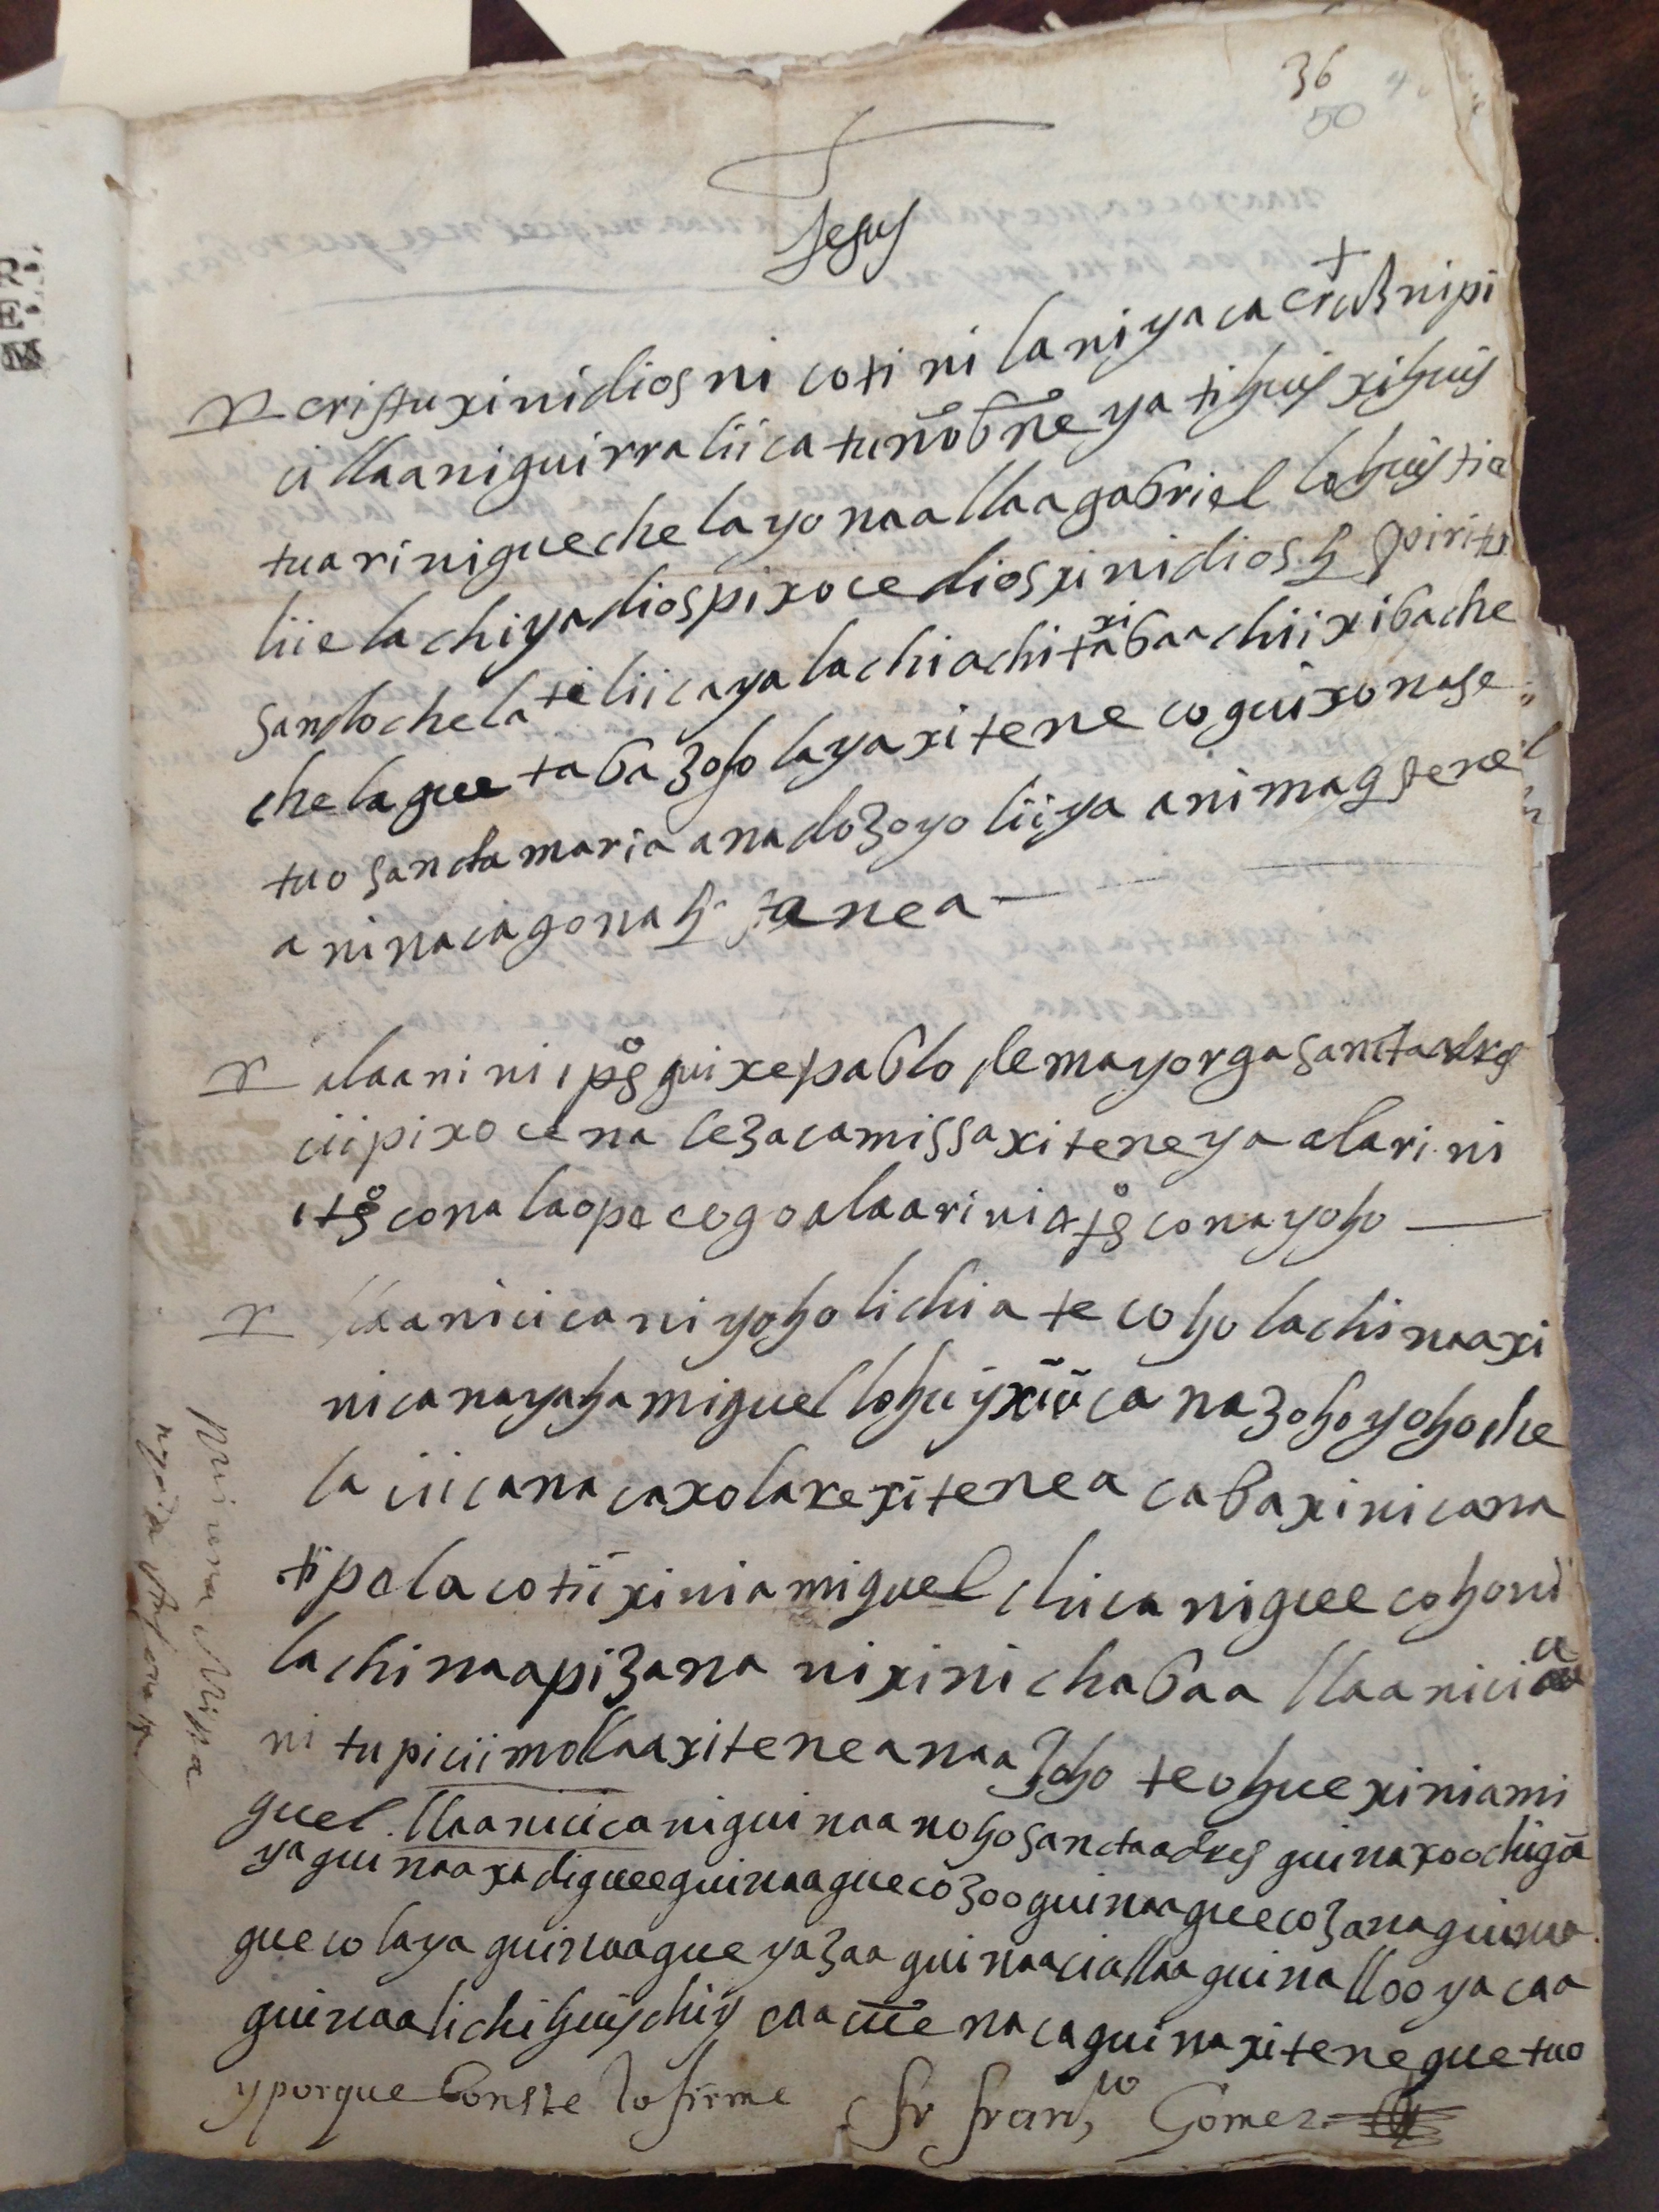 36
50
Jesus
cristu xinidios ni coti ni laniyaca cruz nipi
cillaaniguirraliicatunobñe ya tihuis xihuis
tuarinigueche layo naa llaa gabriel lohuis tia
liielachiya dios pixoce dios xinidios h spiritu
sancto chela te liicaya lachi achi taxibaa chii xibache
chela guetabazoho layaxitene coguixonase
tuo sancta maria anadozoyo liiya animas stene
a ninacagona h stanea
alaani ni 1 pos guixe pablo de mayorga sancta adres
ciipixocena lezaca missa xiteneya alarini
1 tos cona laopa cogo alaarini 4 tos conayoho
llaanicicani yoho lichia tecoho lachi naaxi
nicanayaha miguel lohuy xiii ca nazoho yoho che
la ciicanacaxolarexitenea cabaxinicana
tipela cotii xinia miguel chicaniguee cohoni
lachi naapizana nixinichabaa llaanicia
ni tupiciimollaaxitenea naa zoho teohue xinia mi
guel llaanicicani guinaa noho sancta adres guinaxoochiga
ya guinaaxadiguee guinaaguecozoo guinaaguecozana guinaa
guecolaya guinaagueyazaa guinaaciallaa guinalloo yacaa
guinaalichihuischiy caacue nacaguinaxitenequetuo
y porque Conste lo firme fr franco Gomez